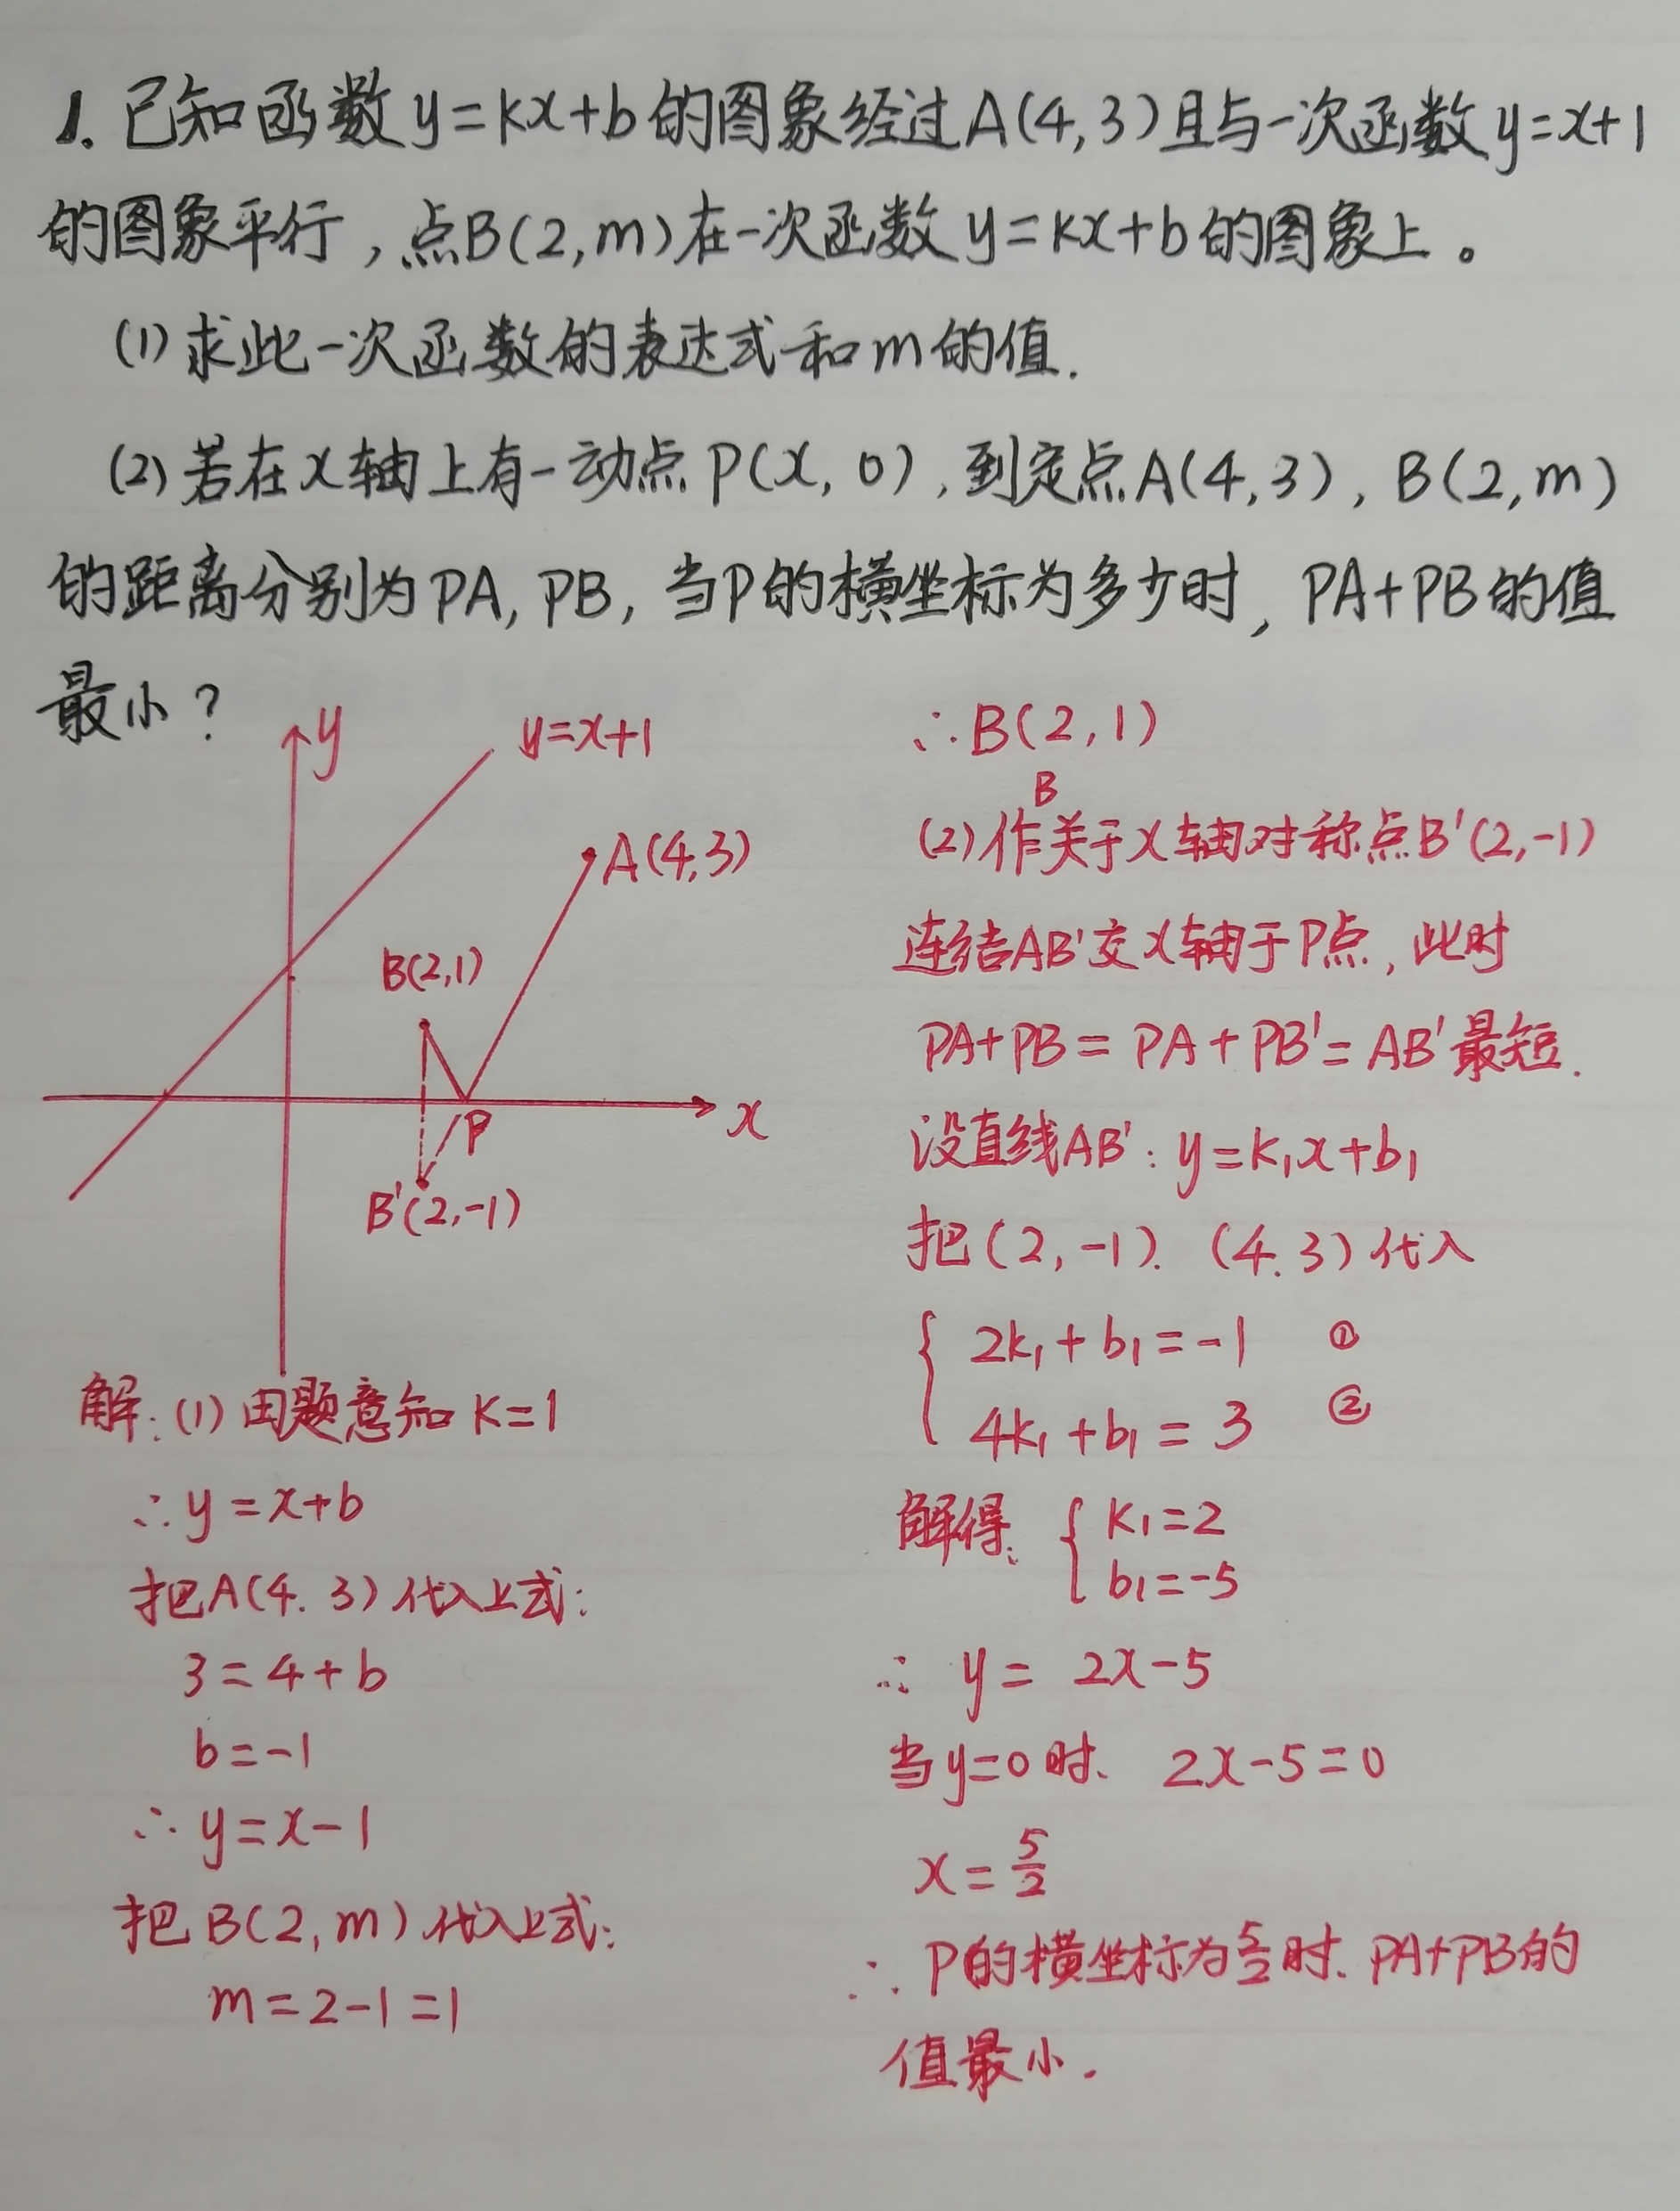 1. 已知函数y=kx+b的图象经过A(4,3)且与一次函数y=x+1
的图象平行，点B(2,m)在一次函数y=kx+b的图象上。
(1)求此一次函数的表达式和m的值.
(2)若在x轴上有一动点P(x,0),到定点A(4,3),B(2,m)
的距离分别为PA,PB,当P的横坐标为多少时,PA+PB的值
最小?
y
y=x+1
A(4,3)
B(2,1)
P
x
B'(2,-1)
解:(1)由题意知K=1
∴y=x+b
把A(4.3)代入上式:
3=4+b
b=-1
∴y=x-1
把B(2,m)代入上式:
m=2-1=1
∴B(2,1)
B
(2)作关于x轴对称点B'(2,-1)
连结AB'交x轴于P点,此时
PA+PB=PA+PB'=AB'最短.
设直线AB':y=k₁x+b₁
把(2,-1).(4.3)代入
2k₁+b₁=-1 ①
4k₁+b₁=3 ②
解得:{k₁=2
b₁=-5
∴ y=2x-5
当y=0时. 2x-5=0
x=5/2
∴P的横坐标为5/2时.PA+PB的
值最小.